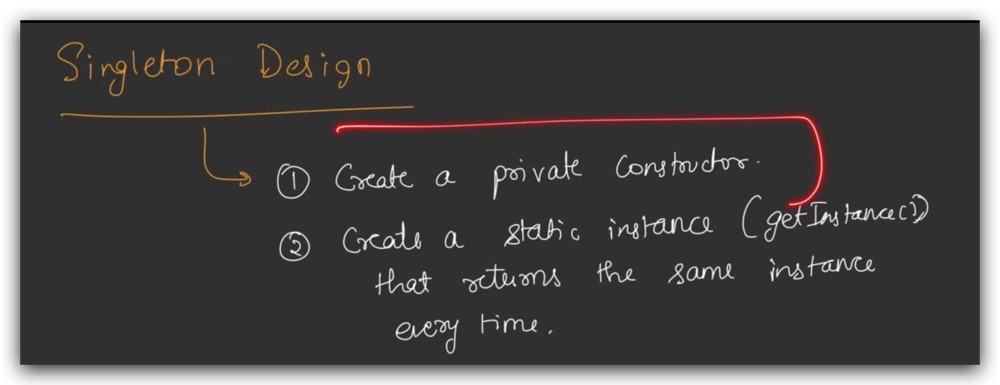 Singleton Design
① Create a private constructor.
② Create a static instance (getInstance())
that returns the same instance
every time.